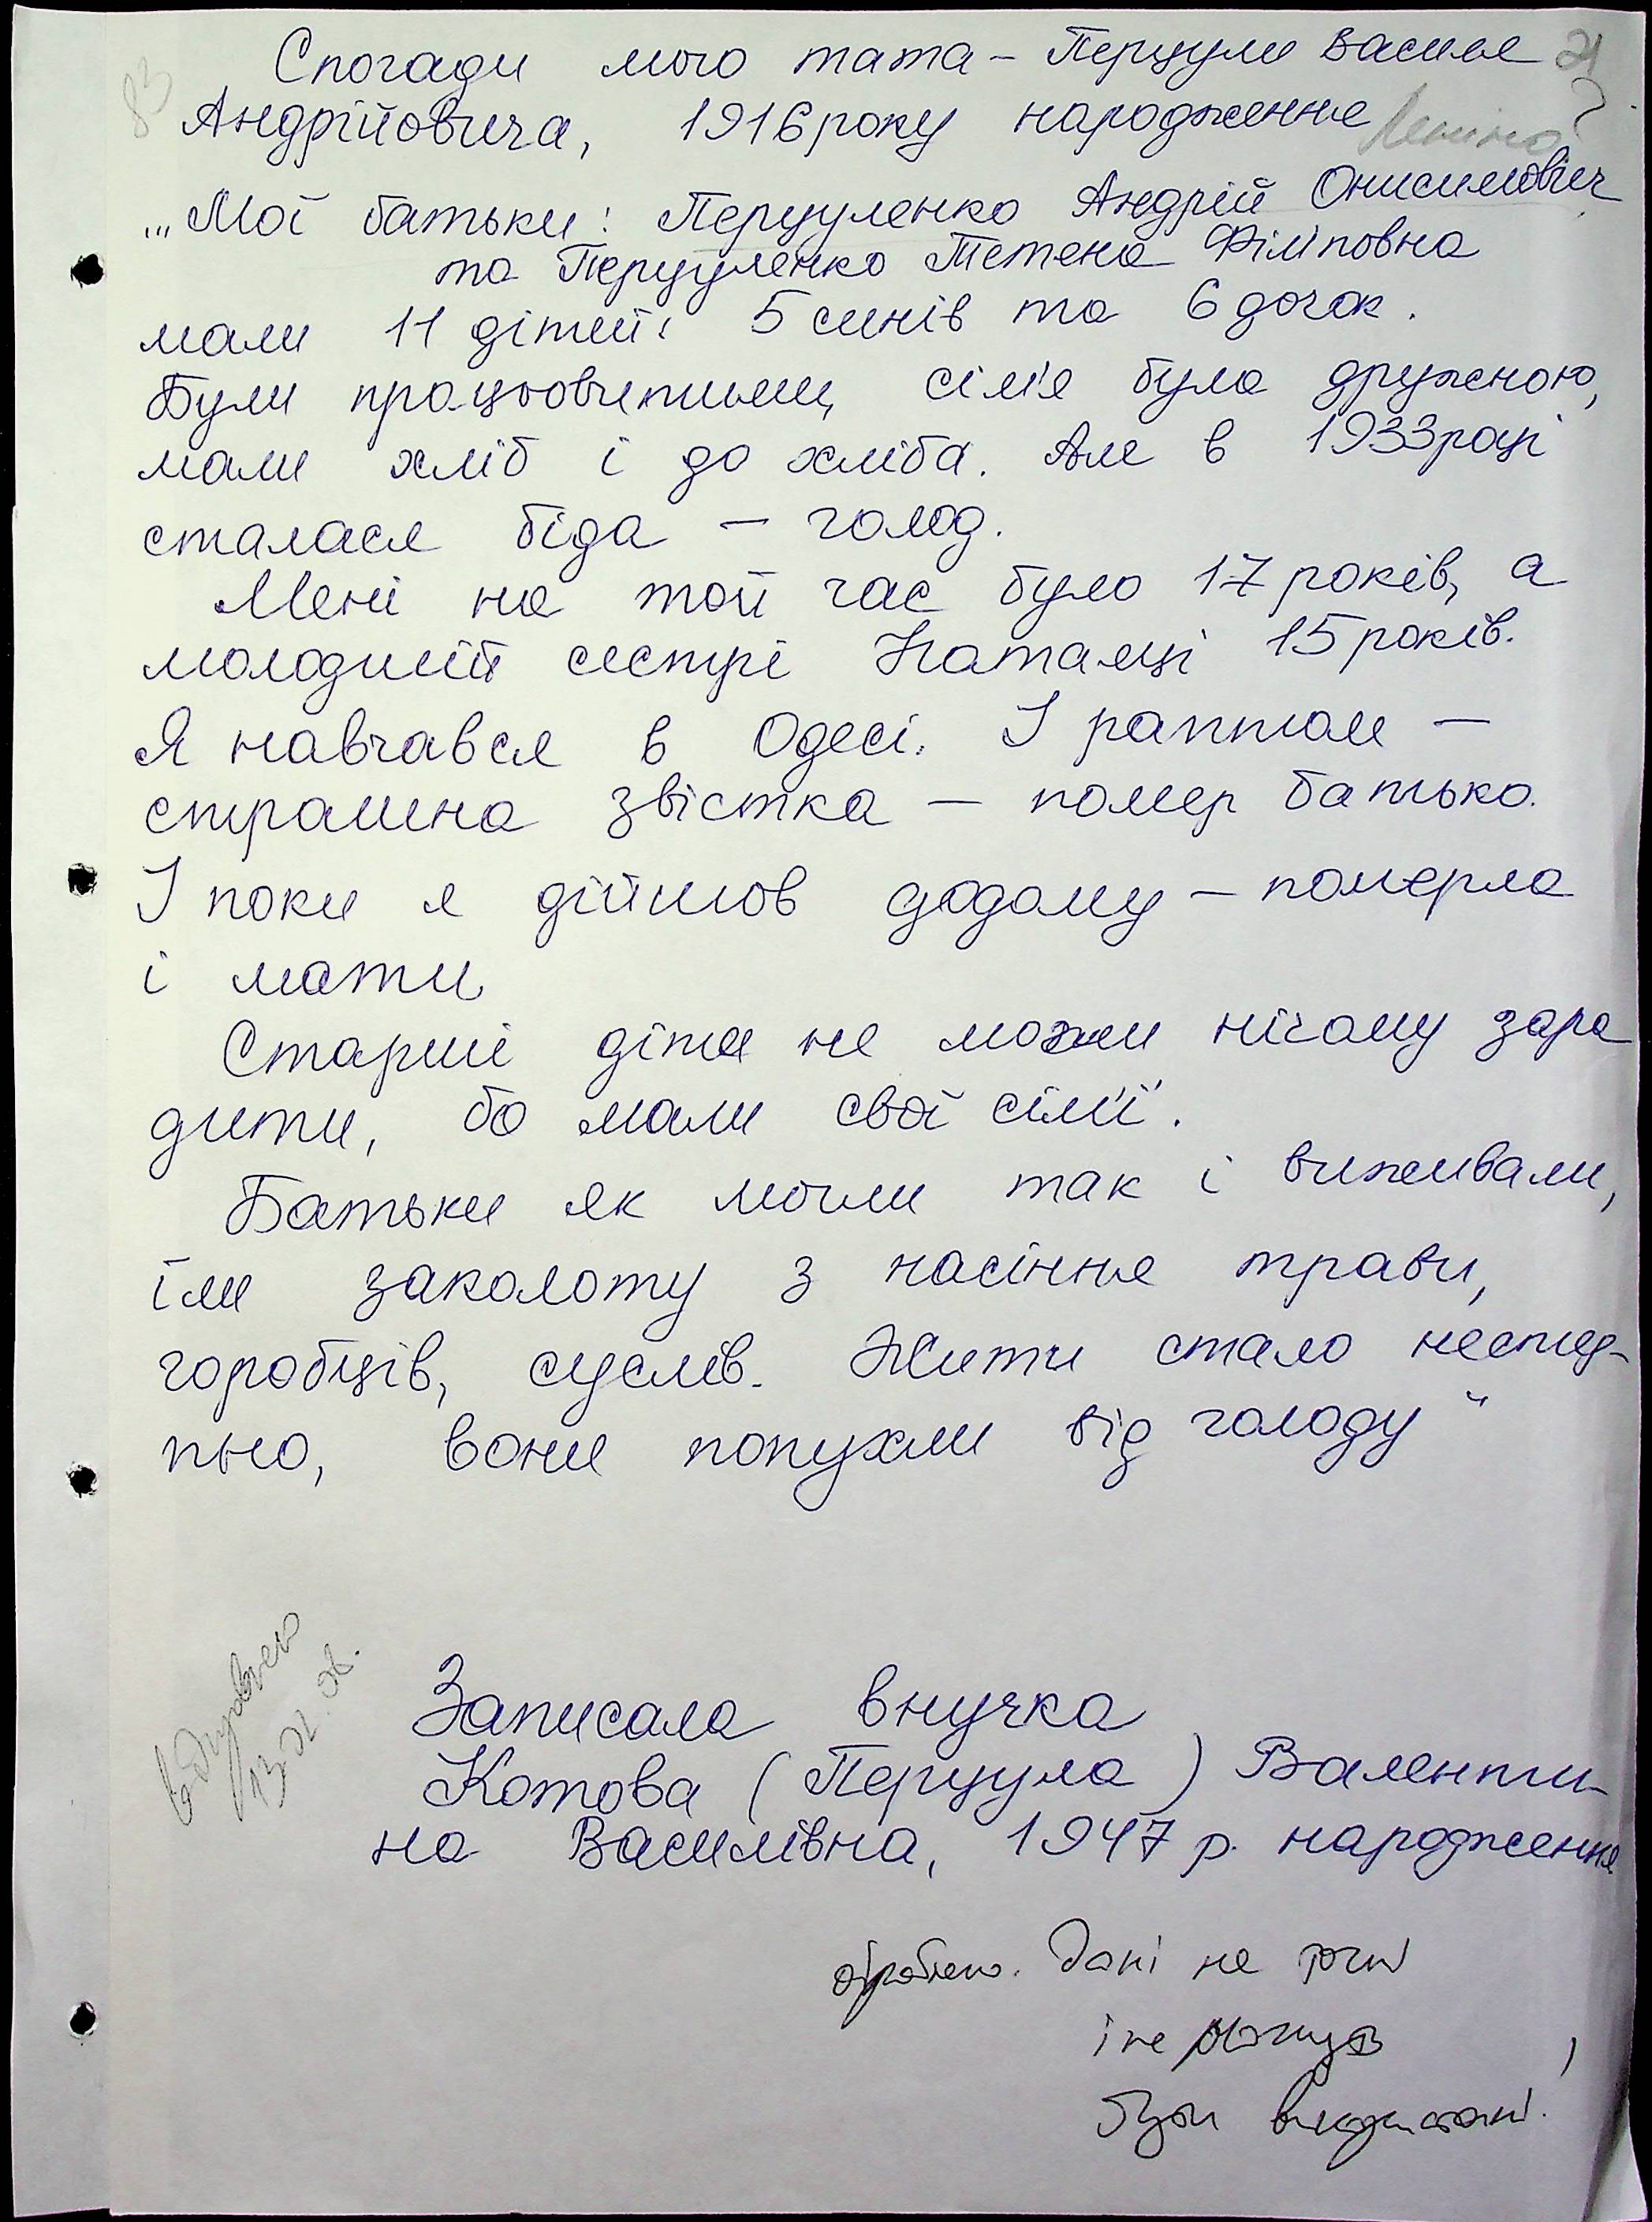 Спогади мого тата – Перцули Василя
Андрійовича, 1916 року народження
"Мої батьки: Перцуленко Андрій Онисимович
та Перцуленко Тетена Філіповна
мали 11 дітей: 5 синів та 6 дочок.
Були працьовитими, сім'я була дружною,
мали хліб і до хліба. Але в 1933 році
сталася біда – голод.
Мені на той час було 17 років, а
молодшій сестрі Наталці 15 років.
Я навчався в Одесі. І раптом –
страшна звістка – помер батько.
І поки я дійшов додому – померла
і мати
Старші діти не могли нічому зара
дити, бо мали свої сім'ї.
Батьки як могли так і виживали,
їли заколоту з насіння трави,
горобців, суслів. Жити стало нестер-
пно, вони попухли від голоду"
Записала внучка
Котова (Перцула) Валенти-
на Василівна, 1947 р. народження
оброблено. Дані не точні
і не можуть
бути використані.